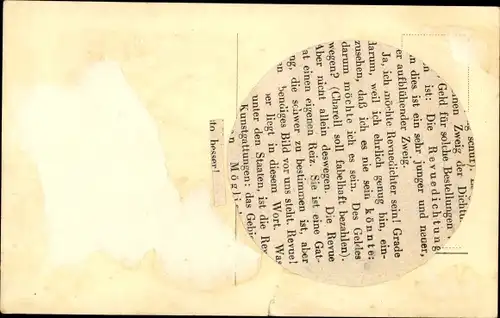 g schnurj.
nen Zweig der Dichtu
Geld für solche Bestellungen
ist: Die Revuedichtung
n dies ist ein sehr junger und neuer,
er aufblühender Zweig.
Ja, ich möchte Revuedichter sein! Grade
darum, weil ich ehrlich genug bin, ein-
zusehen, daß ich es nie sein könnte:
darum möchte ich es sein. Des Geldes
wegen? (Charell soll fabelhaft bezahlen).
Aber nicht allein deswegen. Die Revue
at einen eigenen Reiz. Sie ist eine Gat-
ng, die schwer zu bestimmen ist, aber
n bendiges Bild vor uns steht. Revue!
er liegt in diesem Wort. Was
unter den Staaten, ist die Rev
Kunstgattungen: das Gebi
n Mögli
ito besser!